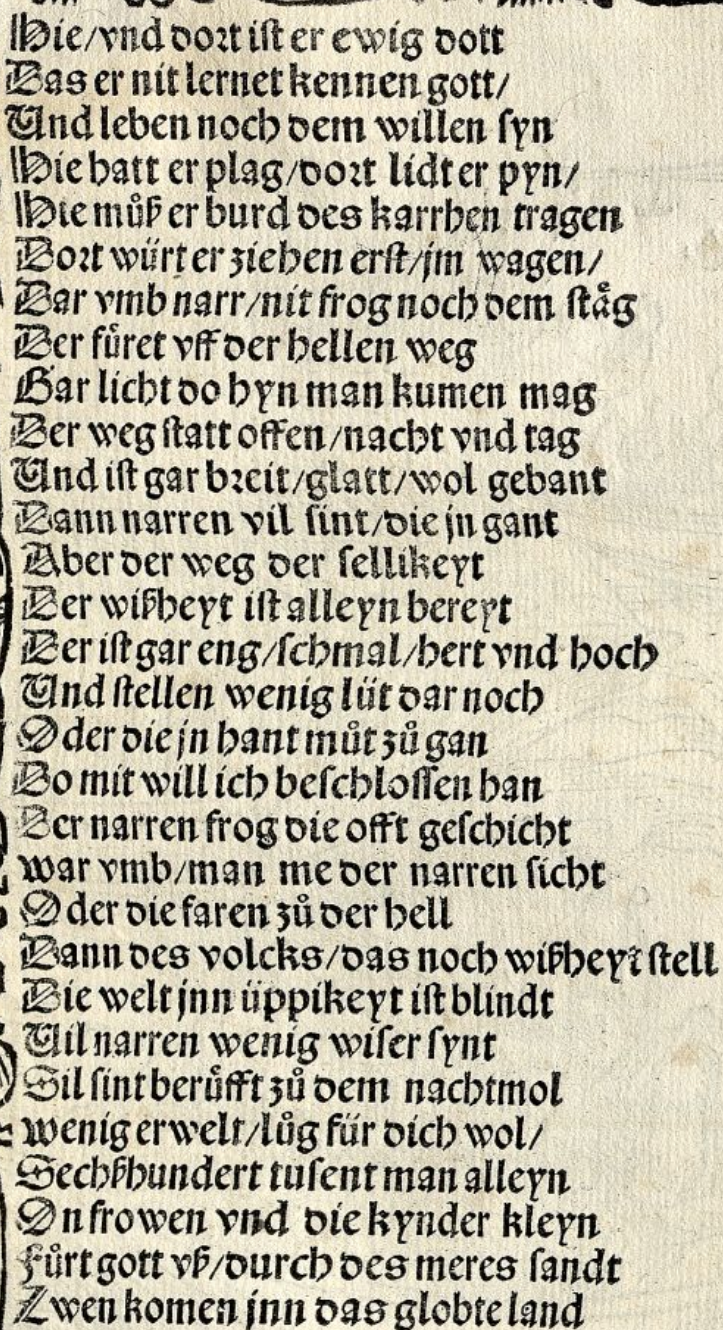 Hie/vnd dort ist er ewig dott
Das er nit lernet kennen gott/
Und leben noch dem willen syn
Hie hatt er plag/dort lidt er pyn/
Hie můß er burd des karrhen tragen
Dort würt er ziehen erst/jm wagen/
Dar vmb narr/nit frog noch dem ståg
Der fůret vff der hellen weg
Gar licht do hyn man kumen mag
Der weg statt offen/nacht vnd tag
Und ist gar breit/glatt/wol gebant
Dann narren vil sint/die jn gant
Aber der weg der sellikeyt
Der wißheyt ist alleyn bereyt
Der ist gar eng/schmal/hert vnd hoch
Und stellen wenig lüt dar noch
Oder die jn hant můt zů gan
Do mit will ich beschlossen han
Der narren frog die offt geschicht
War vmb/man me der narren sicht
Oder die faren zů der hell
Dann des volcks/das noch wißheyt stell
Die welt jnn üppikeyt ist blindt
Vil narren wenig wiser synt
Sil sint berůfft zů dem nachtmol
Wenig erwelt/lůg für dich wol/
Sechßhundert tusent man alleyn
On frowen vnd die kynder kleyn
Fůrt gott vß/durch des meres sandt
Zwen komen jnn das globte land